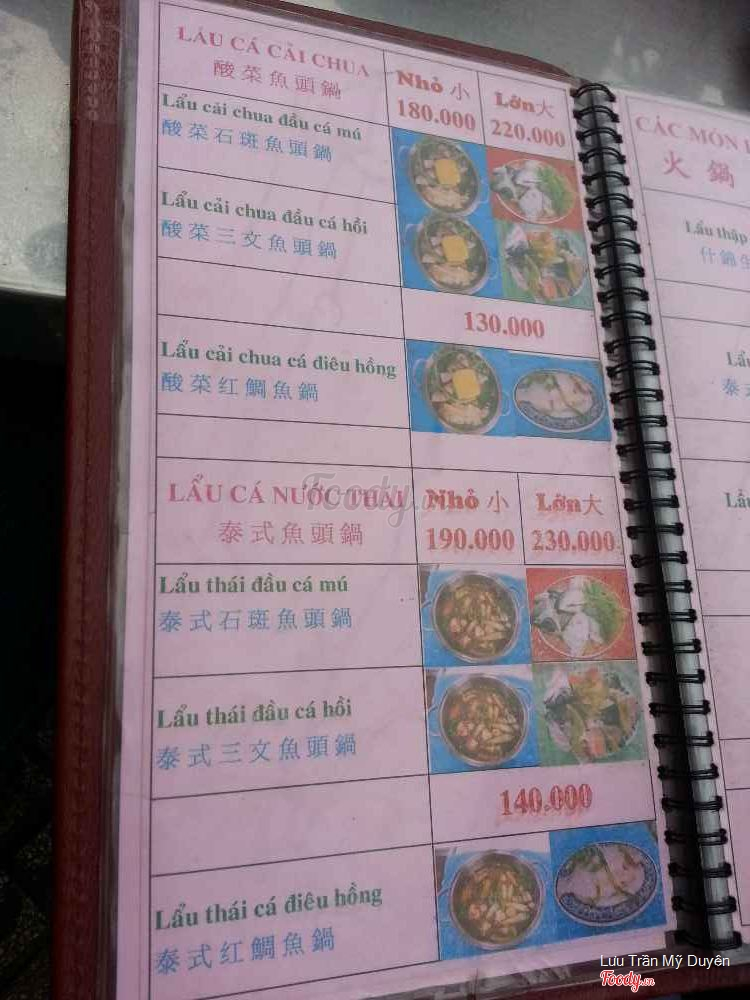 LẨU CÁ CẢI CHUA
酸菜魚頭鍋
Nhỏ 小
180.000
Lớn大
220.000
Lẩu cải chua đầu cá mú
酸菜石斑魚頭鍋
Lẩu cải chua đầu cá hồi
酸菜三文魚頭鍋
130.000
Lẩu cải chua cá điêu hồng
酸菜红鯛魚鍋
LẨU CÁ NƯỚC THÁI
泰式魚頭鍋
Nhỏ 小
190.000
Lớn大
230.000
Lẩu thái đầu cá mú
泰式石斑魚頭鍋
Lẩu thái đầu cá hồi
泰式三文魚頭鍋
140.000
Lẩu thái cá điêu hồng
泰式红鯛魚鍋
CÁC MÓN
火鍋
Lẩu thập
什錦
Lẩu
泰
Lẩu
Foody.vn
Lưu Trần Mỹ Duyên
Foody.vn